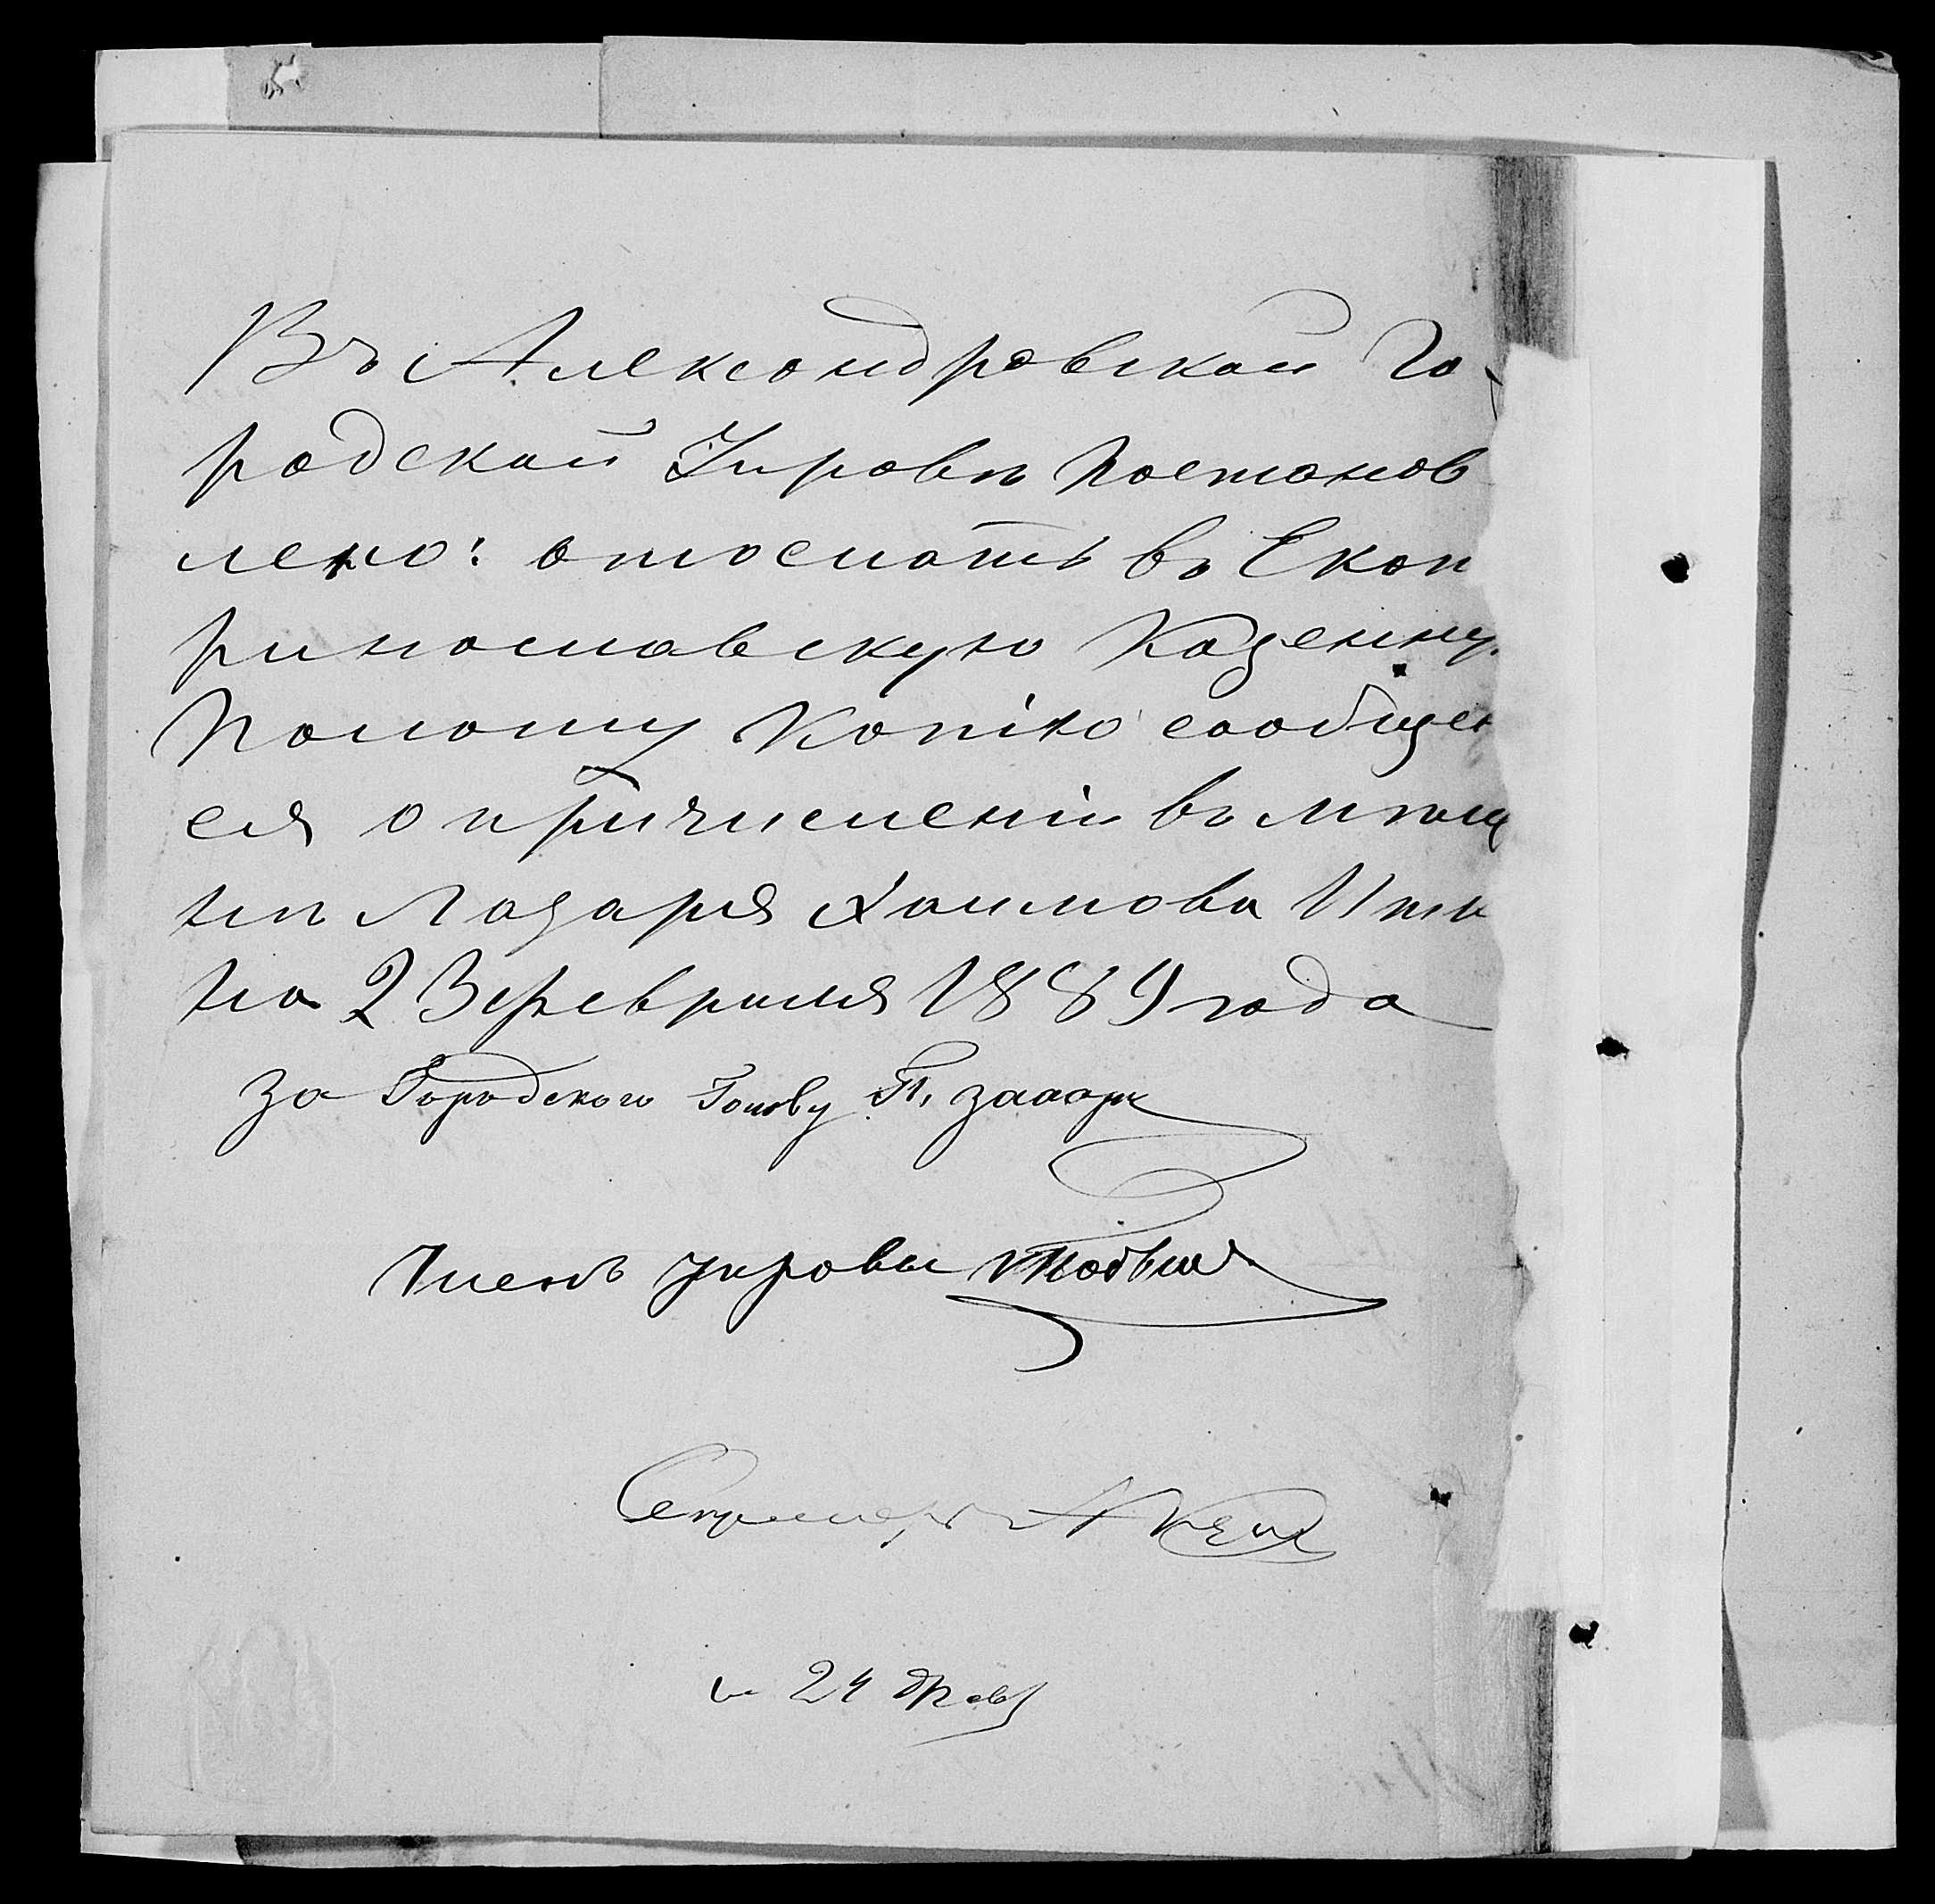 Въ Александровской Го-
родской Управѣ постанов
лено: отослать въ Екат
ринославскую Казенну
Полату Копію сообщен
ея о причисленіи въ мѣщ
не Лазаря Хаимова Итк
на 23 февраля 1889 года
за Городского Голову П.
Членъ управы
Секретарь А
24 Фев